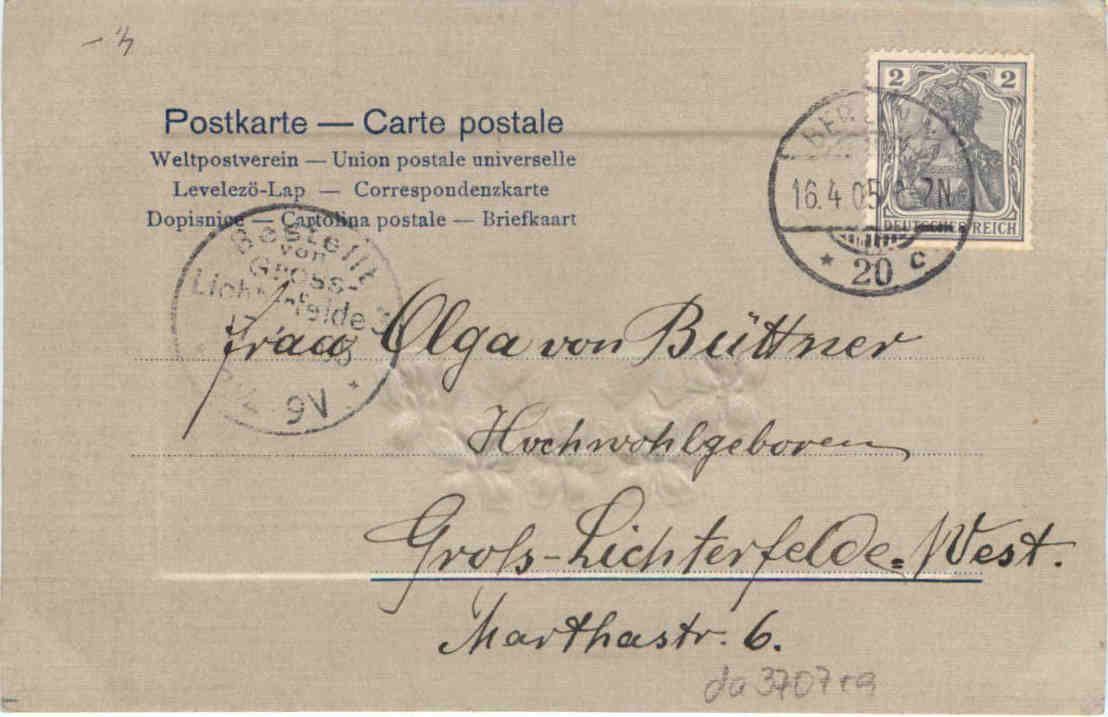 Postkarte — Carte postale
Weltpostverein — Union postale universelle
Levelező-Lap — Correspondenzkarte
Dopisnice — Cartolina postale — Briefkaart
2 2
DEUTSCHES REICH
BERLIN
16.4.05 6-7N
* 20 c
Bestellt
von
GROSS-
Lichterfelde 3
9V
Frau Olga von Büttner
Hochwohlgeboren
Groß-Lichterfelde-West.
Marthastr. 6.